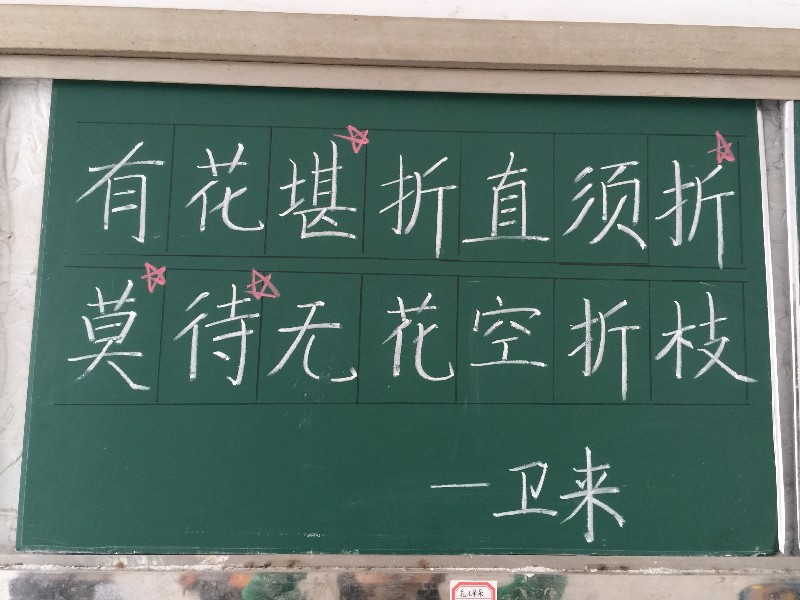 有花堪折直须折
莫待无花空折枝
—卫来